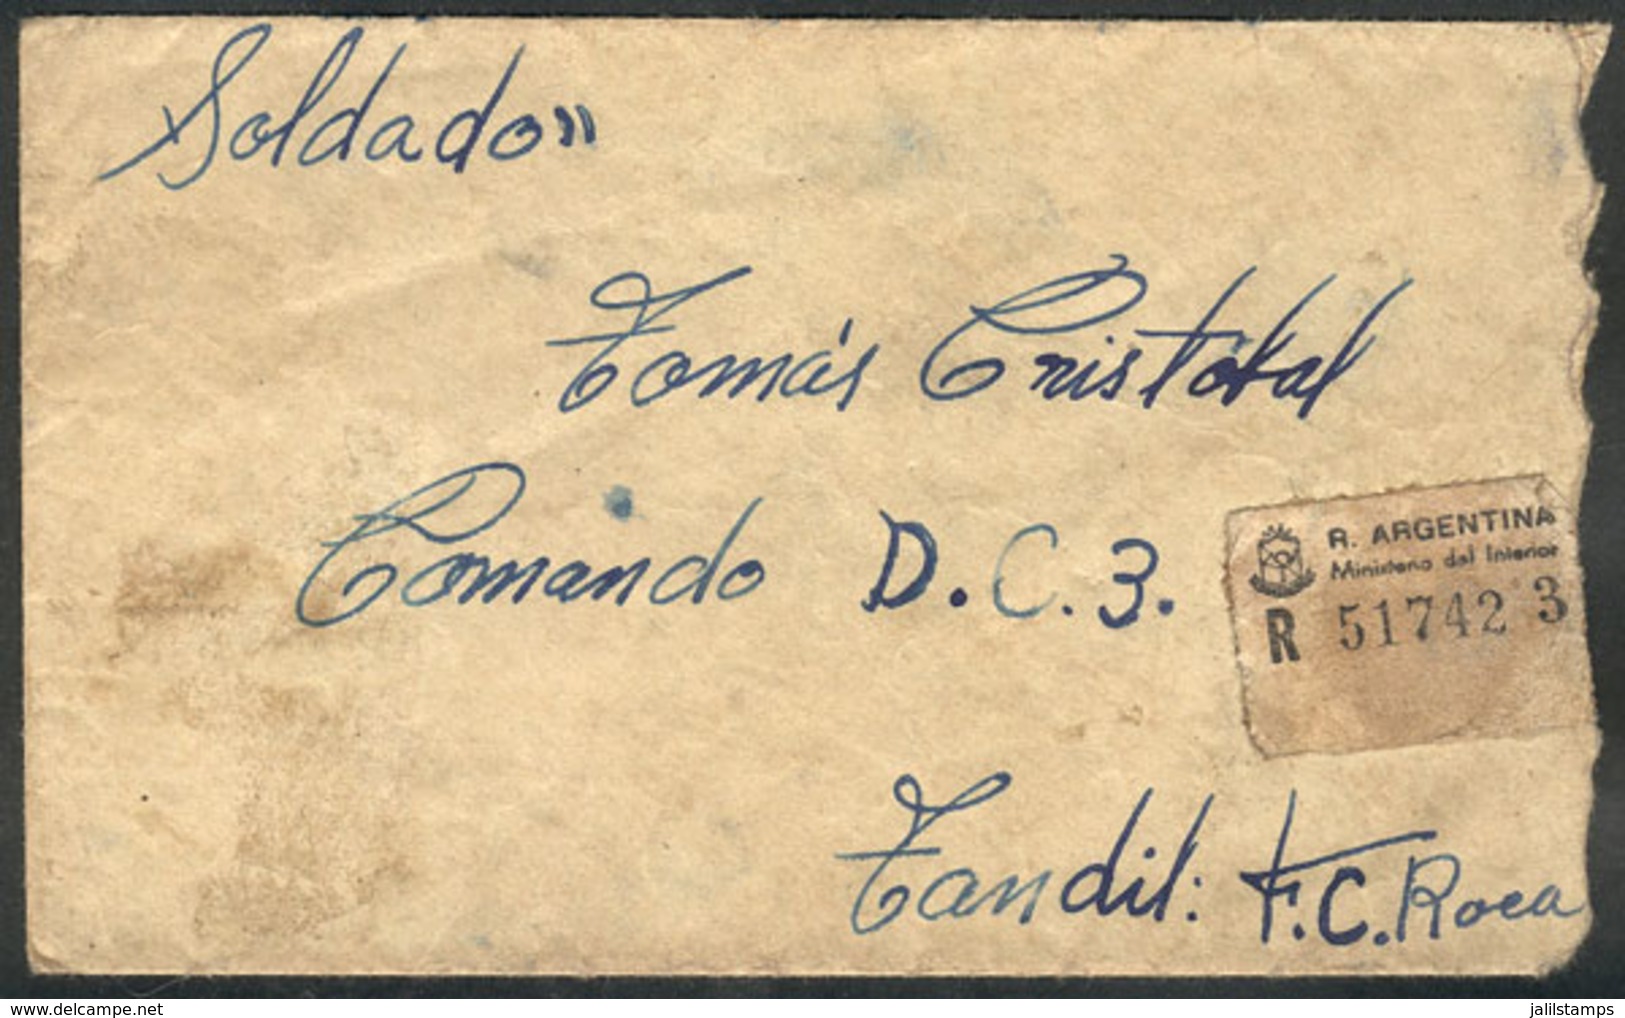 Soldado"
Tomás Cristobal
Comando D.C.3.
R. ARGENTINA
Ministerio del Interior
R 51742 3
Tandil: F.C. Roca
jalilstamps